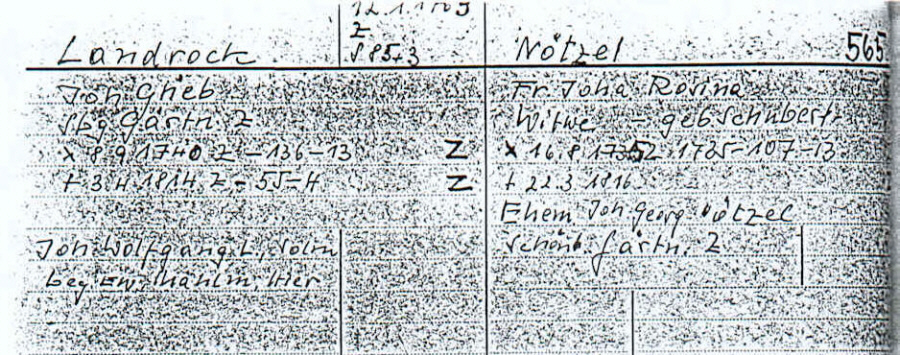 Landrock
Z
Nötzel
565
Joh Glieb
Gärtn. Z
x 8 9 1740 Z - 136-13 Z
+ 3.4.1814. Z - 55-4 Z
Joh. Wolfgang L,
beg. Einw. hier
Fr. Joha. Rosina
Witwe - geb Schubert
x 16.8 1735-107-13
+ 22.3 1816
Ehem Joh Georg Nötzel
Schönb. Gärtn. Z